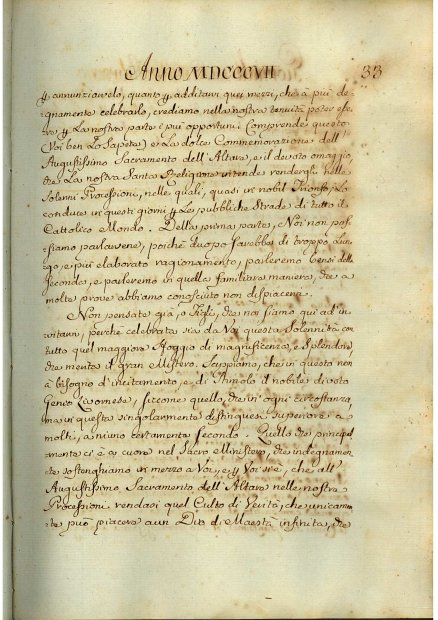 Anno MDCCCVII 33
p annunziarvelo, quanto p additarvi quei mezzi, che a più de-
gnamente celebrarlo, crediamo nella nostra tenuità poter esse-
re p la nostra parte i più opportuni. Comprende questo
(Voi ben lo Sapete) e La dolce Commemorazione dell'
Augustissimo Sacramento dell'Altare, e il devoto omaggio,
che La nostra Santa Religione intende rendergli nelle
Solenni Processioni, nelle quali, quasi in nobil Trionfo, Lo
conduce in questi giorni p Le pubbliche Strade di tutto il
Cattolico Mondo. Della prima parte, Noi non pos-
siamo parlarvene, poichè d'uopo sarebbe di troppo Lun-
go, e più elaborato ragionamento, parleremo bensì della
seconda, e parleremo in quella familiare maniera, che a
molte prove abbiamo conosciuto non dispiacervi.
Non pensate già, o Figli, che noi siamo qui ad in-
vitarvi, perchè celebrata sia da Voi questa Solennità con
tutto quel maggiore sfoggio di magnificenza, e Splendore,
che merita il gran Mistero. Sappiamo, che in questo non
à bisogno d'incitamento, e di Stimolo il nobile, e divoto
Genio Livornese, siccome quello, che in ogni circostanza,
ma in questa singolarmente distinguesi superiore a
molti, a niuno certamente secondo. Quello che principal-
mente ci è a cuore nel Sacro Ministero, che indegnamen-
te sostenghiamo in mezzo a Voi, e p Voi si è, che all'
Augustissimo Sacramento dell'Altare nelle nostre
Processioni rendasi quel Culto di Verità, che unicamen-
te può piacere a un Dio di Maestà infinita, che